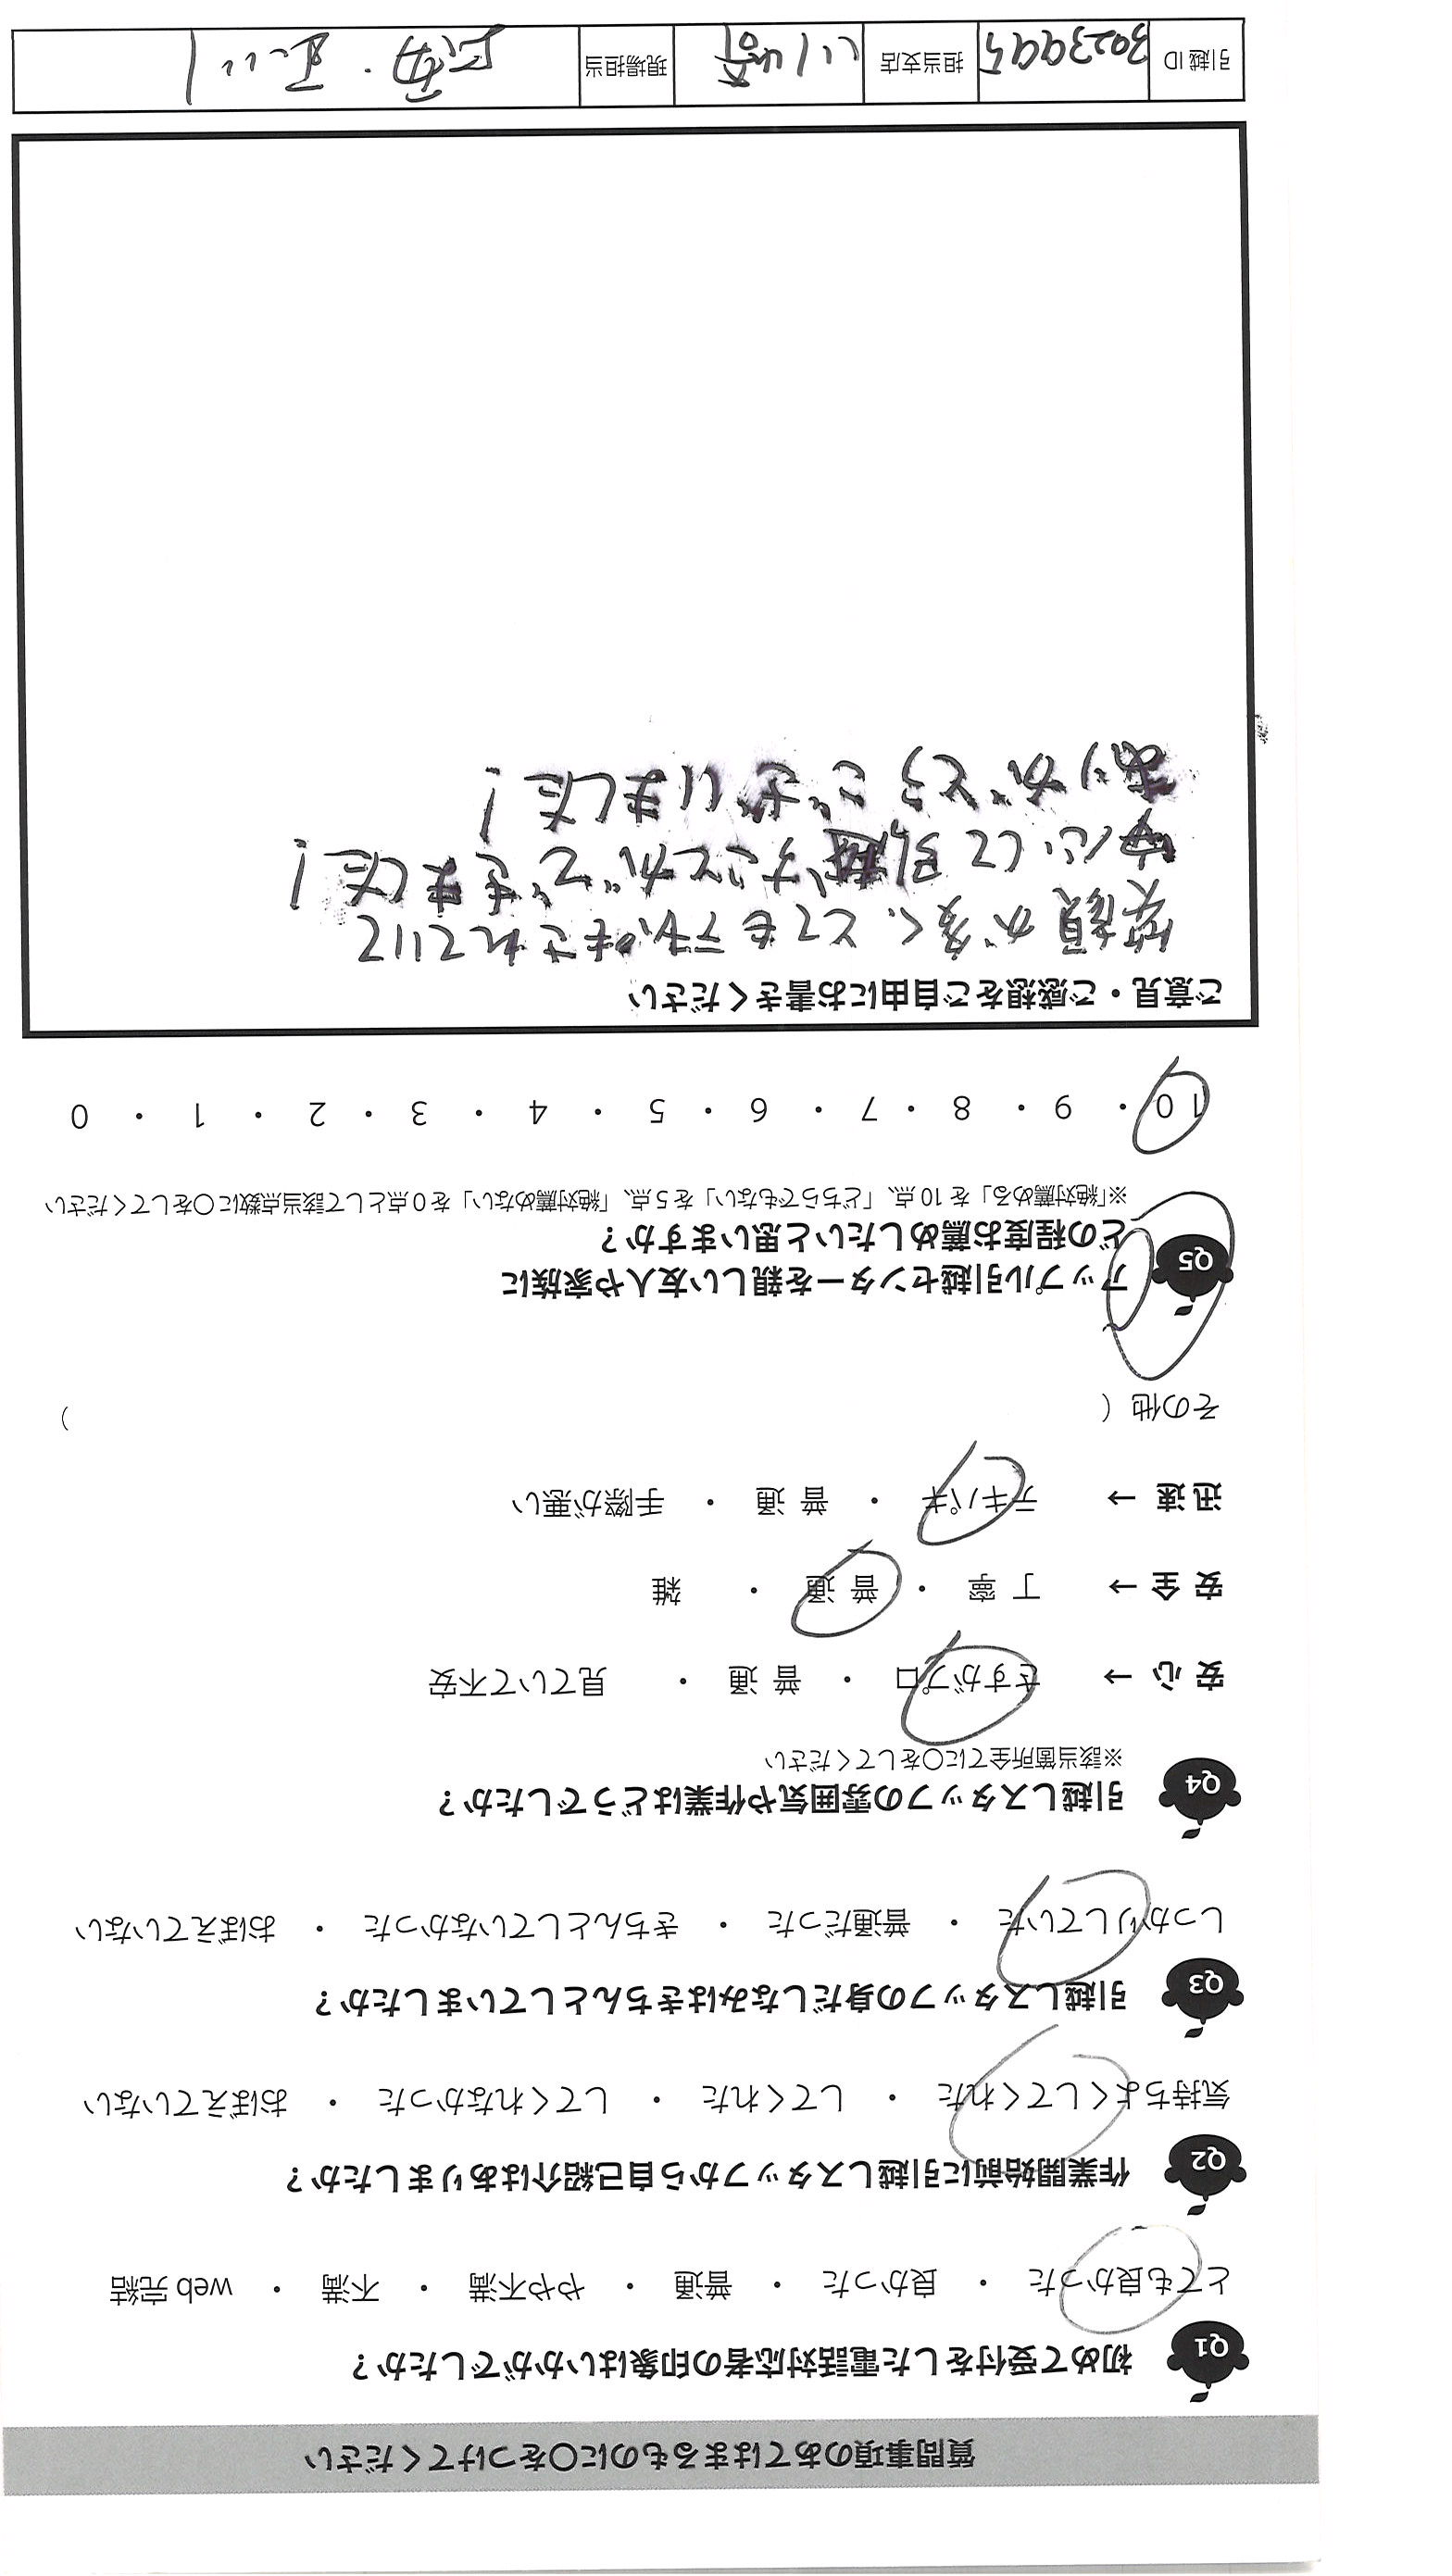 質問事項のあてはまるものに○をつけてください
Q1 初めて受付をした電話対応者の印象はいかがでしたか？
とても良かった ・ 良かった ・ 普通 ・ やや不満 ・ 不満 ・ web 完結
Q2 作業開始前に引越しスタッフから自己紹介はありましたか？
気持ちよくしてくれた ・ してくれた ・ してくれなかった ・ おぼえていない
Q3 引越しスタッフの身だしなみはきちんとしていましたか？
しっかりしていた ・ 普通だった ・ きちんとしていなかった ・ おぼえていない
Q4 引越しスタッフの雰囲気や作業はどうでしたか？
※該当箇所全てに○をしてください
安 心 → さすがプロ ・ 普 通 ・ 見ていて不安
安 全 → 丁 寧 ・ 普 通 ・ 雑
迅 速 → テキパキ ・ 普 通 ・ 手際が悪い
その他（ ）
Q5 アップル引越センターを親しい友人や家族に
どの程度お薦めしたいと思いますか？
※「絶対薦める」を 10 点、「どちらでもない」を 5 点、「絶対薦めない」を 0 点として該当点数に○をしてください
10 ・ 9 ・ 8 ・ 7 ・ 6 ・ 5 ・ 4 ・ 3 ・ 2 ・ 1 ・ 0
ご意見・ご感想をご自由にお書きください
笑顔が多く、とてもテキパキされていて
安心して引越すことができました！
ありがとうございました！
引越 ID 3023995 担当支店 川崎 現場担当